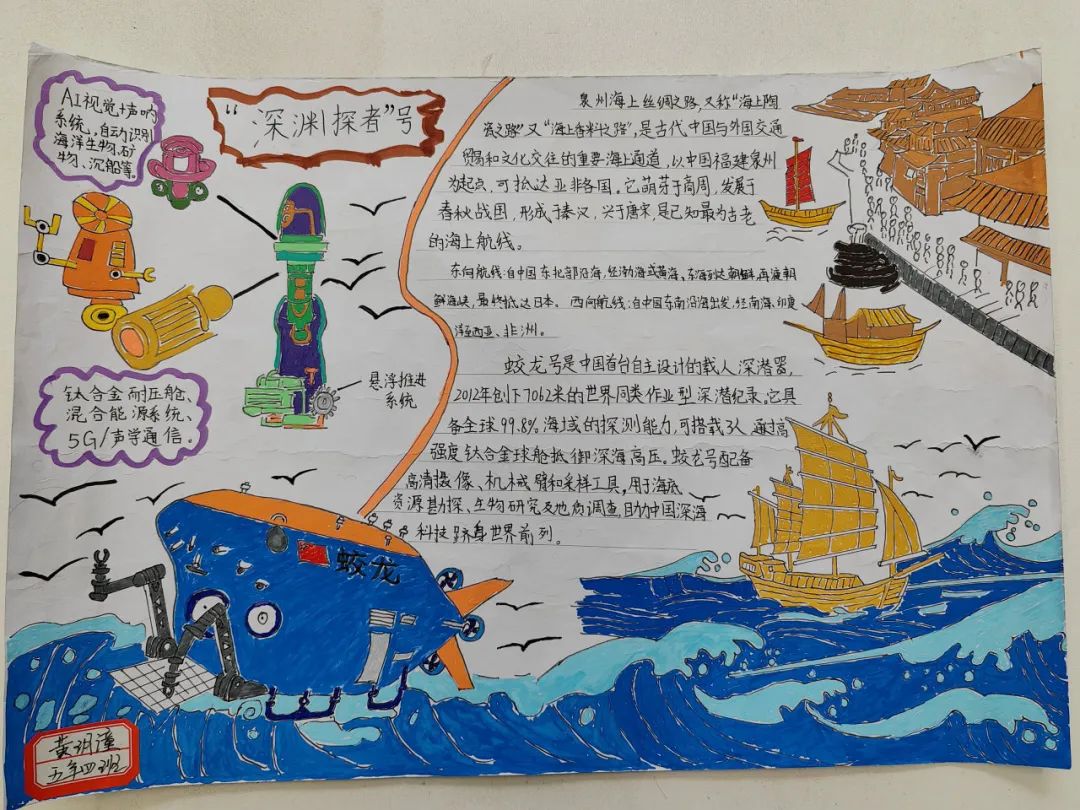 AI视觉+声呐
系统,自动识别
海洋生物、矿
物、沉船等。
“深渊探者”号
钛合金耐压舱、
混合能源系统、
5G/声学通信。
悬浮推进
系统
泉州海上丝绸之路,又称“海上陶
瓷之路”又“海上香料之路”,是古代中国与外国交通
贸易和文化交往的重要海上通道,以中国福建泉州
为起点,可抵达亚非各国。它萌芽于商周,发展于
春秋战国,形成于秦汉,兴于唐宋,是已知最为古老
的海上航线。
东向航线:自中国东北部沿海,经渤海或黄海、东海到达朝鲜,再渡朝
鲜海峡,最终抵达日本。西向航线:自中国东南沿海出发,经南海、印度
洋至西亚、非洲。
蛟龙号是中国首台自主设计的载人深潜器,
2012年创下7062米的世界同类作业型深潜纪录。它具
备全球99.8%海域的探测能力,可搭载3人,通过高
强度钛合金球舱抵御深海高压。蛟龙号配备
高清摄像、机械臂和采样工具,用于海底
资源勘探、生物研究及地质调查,助力中国深海
科技跻身世界前列。
蛟龙
黄
五年四班